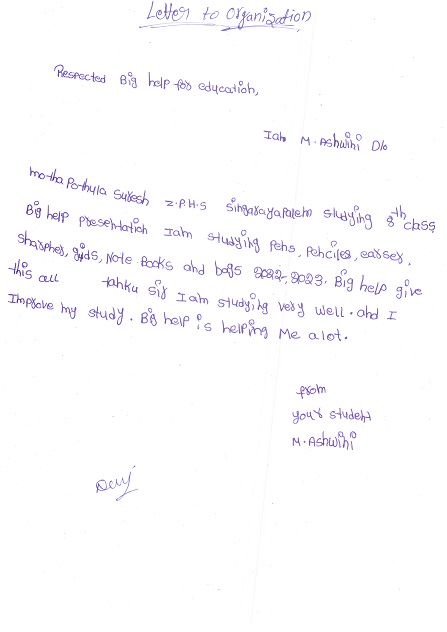 Letter to organization
Respected Big help for education,
Iam M. Ashwini D/o
mothapothula Suresh Z.P.H.S singarayapalem studying 8th class
Big help presentation Iam studying Pens, Penciles, earser,
sharpner, gids, Note Books and bags 2022-2023. Big help give
this all tanku sir I am studying very well. and I
Improve my study. Big help is helping Me alot.
from
your student
M. Ashwini